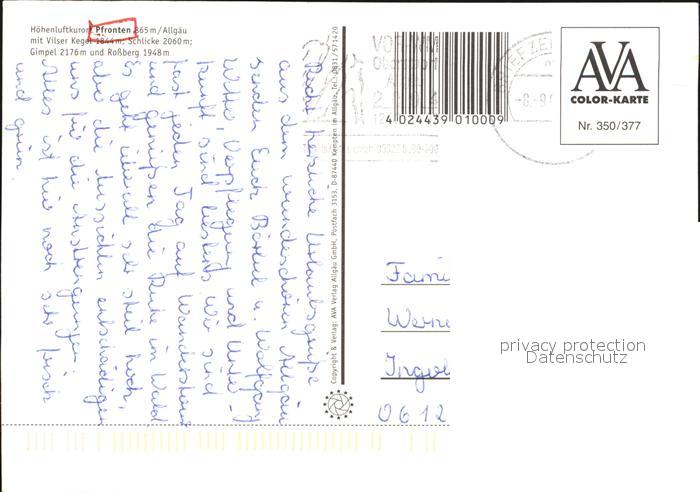 Höhenluftkurort Pfronten 865m/Allgäu
mit Vilser Kegel 1844m; Schlicke 2060m;
Gimpel 2176m und Roßberg 1948m
Recht herzliche Urlaubsgrüße
aus dem wunderschönen Allgäu
senden Euch Bärbel u. Wolfgang
Wetter, Verpflegung und Unter-
kunft sind bestens. Wir sind
fast jeden Tag auf Wanderstour
und genießen die Ruhe im Wald
Es geht überall sehr steil hoch,
aber die Aussichten entschädigen
uns für die Anstrengungen.
Alles ist hier noch sehr frisch
und grün.
Copyright & Verlag: AVA Verlag Allgäu GmbH, Postfach 3153, D-87440 Kempten im Allgäu, Tel. 0831/571420
4 024439 010009
AVA
COLOR-KARTE
Nr. 350/377
Fami
Werne
Ingol
0612
privacy protection
Datenschutz